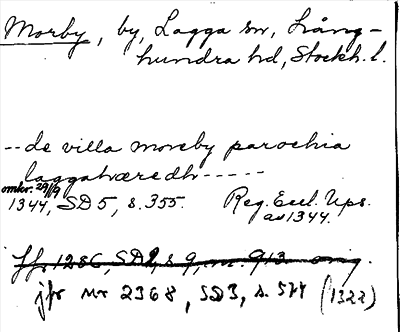 Morby, by, Lagga sn, Lång-
hundra hd, Stockh. l.
-- de villa moreby parochia
laggahæredh -----
omkr. 29/9
1344, SD 5, s. 355. Reg. Eccl. Ups.
av 1344.
Jfr 1286, SD2, s 9, nr. 913 orig.
jfr nr 2368, SD3, s. 574 (1322)